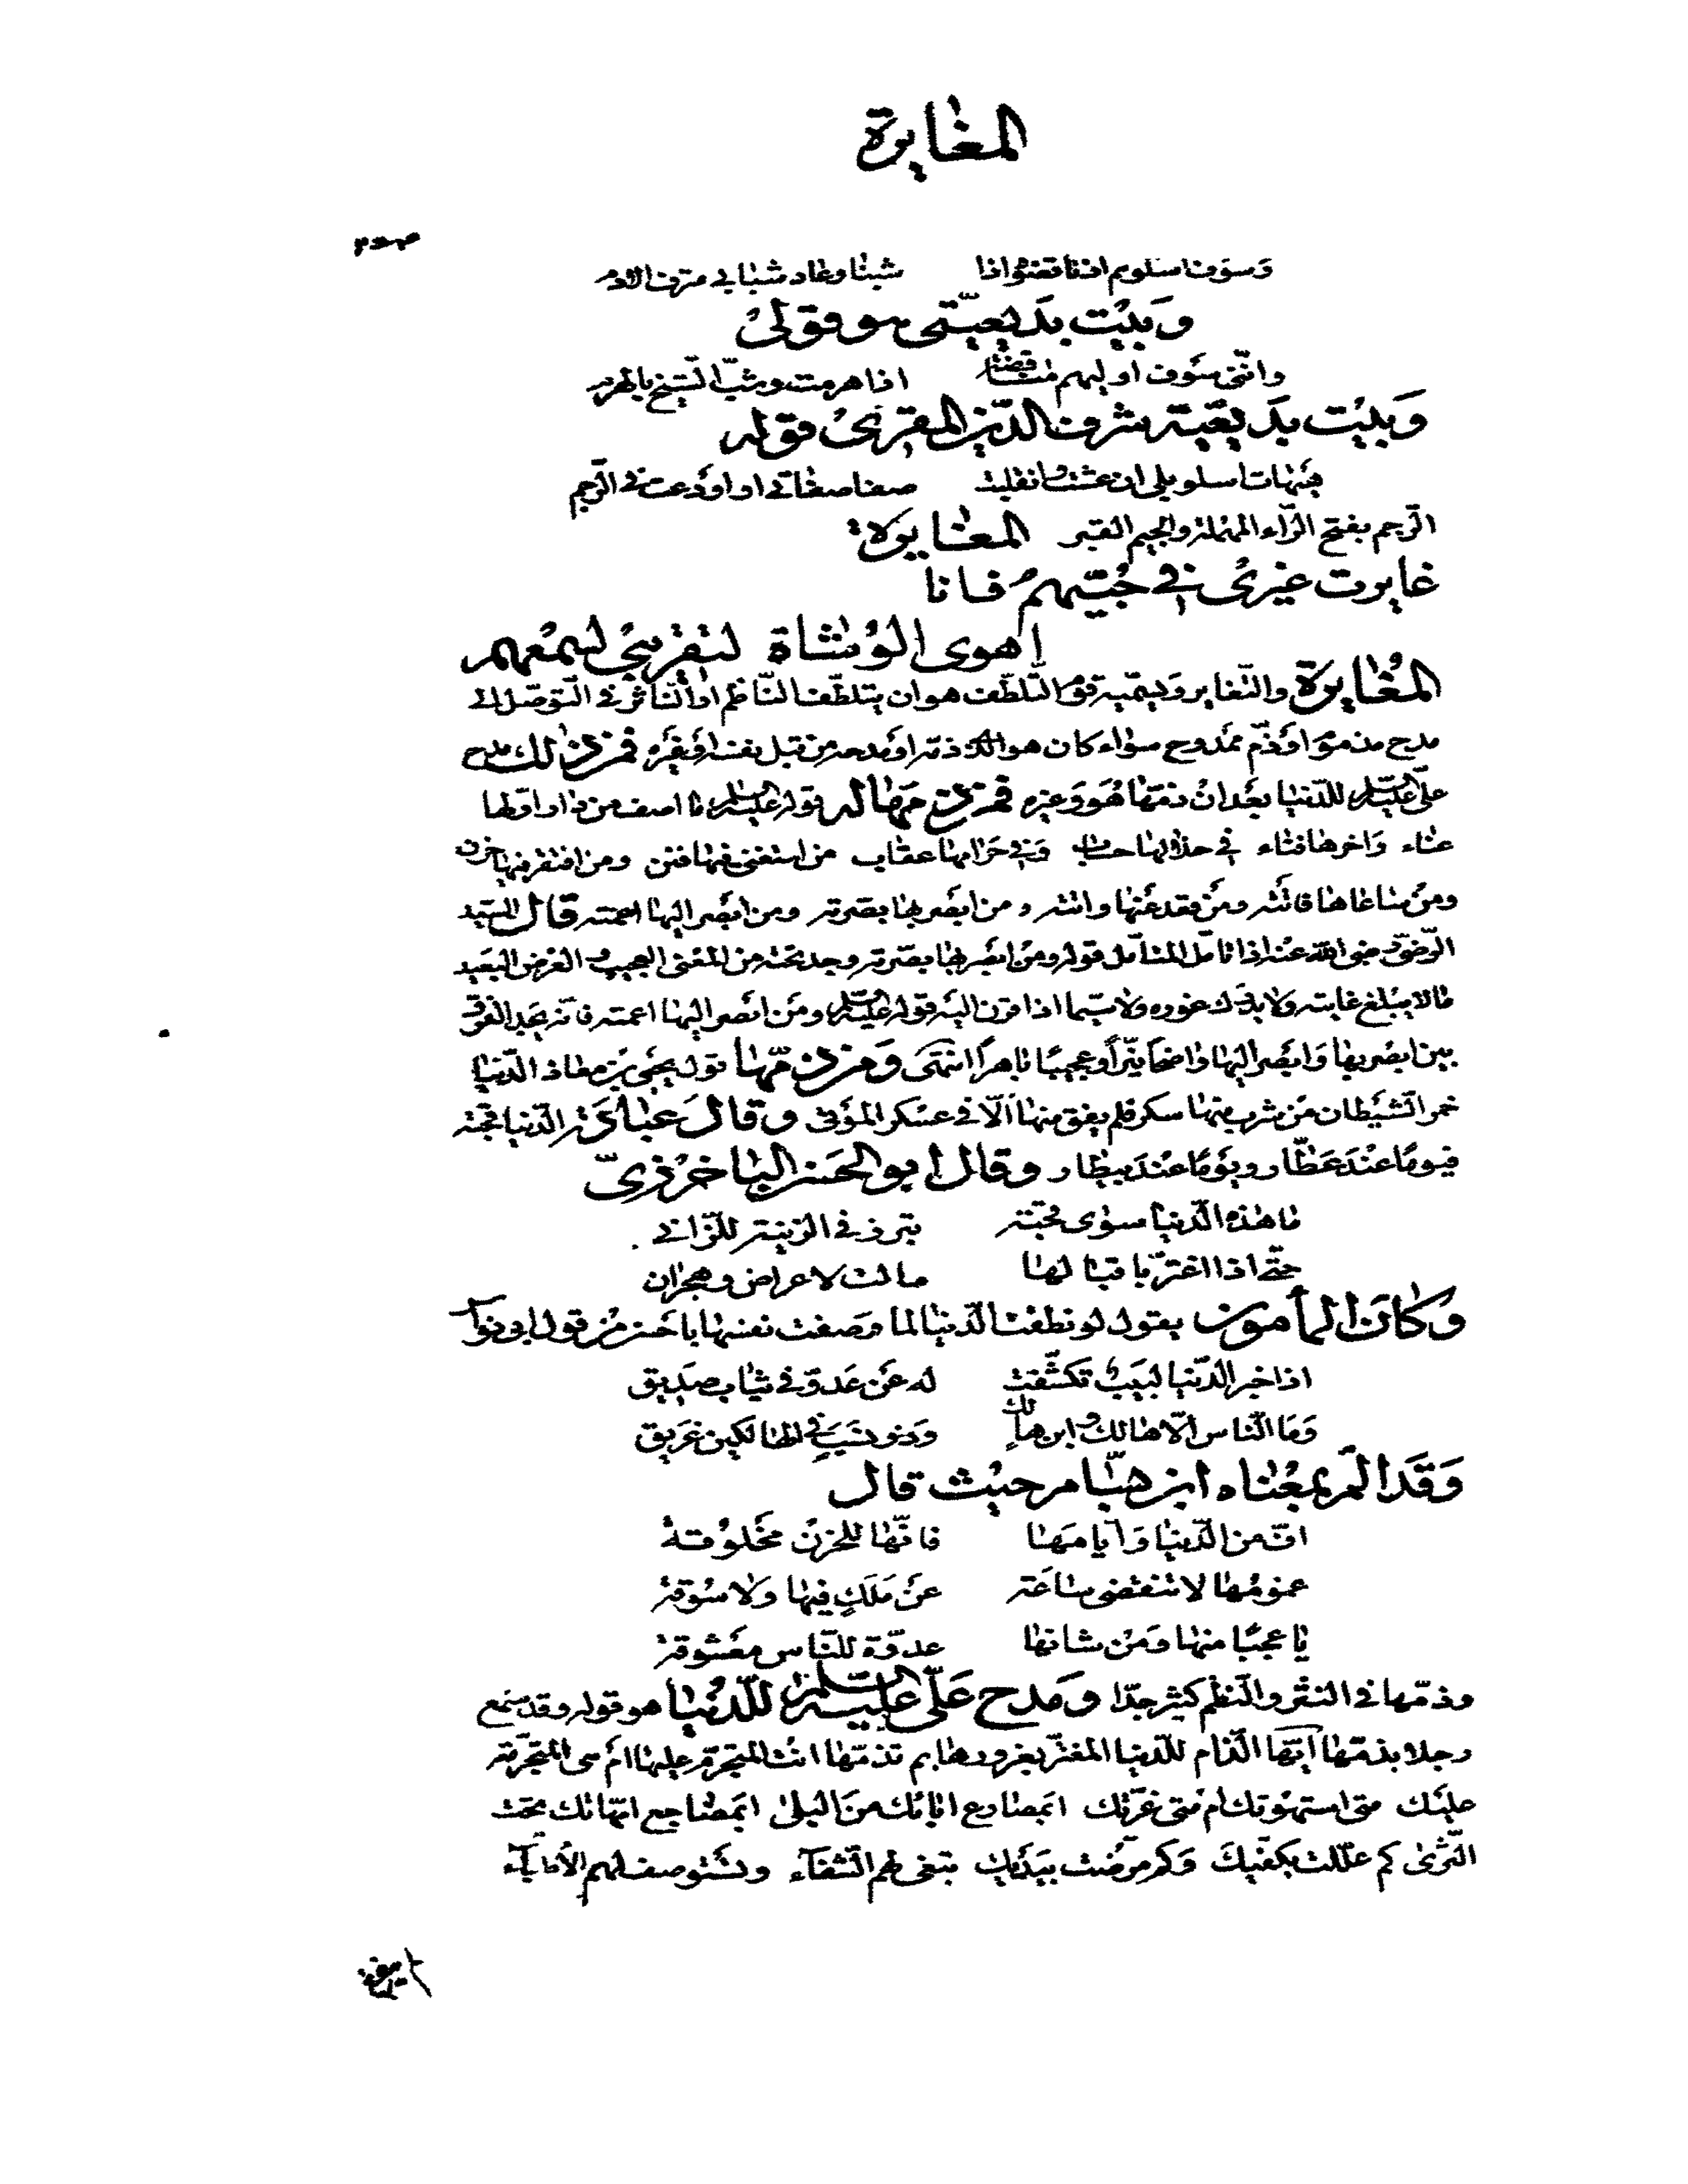 المغايرة
وسوف اسلوهم اذ ناقضوا اذا شبنا وعاد شبابي مترف الادم
وبيت بديعيّتي هو قولي
وانّني سوف اوليهم مناقضة اذا هرمت وشبّ الشيخ بالهرم
وبيت بديعيّة شرف الدّين المقري قوله
هيهات اسلو بلى ان عشت وانقلبت صفا صفاتي او اودعت في الرّجم
الرّجم بفتح الرّاء المهملة والجيم القبر المغايرة
غايرت غيري في حبّيهم فانا
اهوى الوشاة لتقريبي لسمعهم
المغايرة والتّغاير ويسمّيه قوم التّلطّف هو ان يتلطّف النّاظم او النّاثر في التّوصّل الى
مدح مذموم او ذمّ ممدوح سواء كان هو الذي ذمّه او مدحه من قبل بنفسه او غيره فمن ذلك مدح
علّي عليه السّلم للدّنيا بعد ان ذمّها هو وغيره فمن ذمّها له قوله عليه السلم ما اصف من دار اوّلها
عناء وآخرها فناء في حلالها حساب وفي حرامها عقاب من استغنى فيها فتن ومن افتقر فيها حزن
ومن ساعاها فاتته ومن قعد عنها واتته ومن ابصر بها بصرته ومن ابصر اليها اعمته قال السيّد
الرّضيّ رضي الله عنه اذا تامّل المتامّل قوله ومن ابصر بها بصّرته وجد تحته من المعنى العجيب والغرض البعيد
ما لا يبلغ غايته ولا يدرك غوره ولا سيّما اذا قرن اليه قوله عليه السّلم ومن ابصر اليها اعمته فانّه يجد الفرق
بين ابصر بها وابصر اليها واضحا نيّرا وعجيبا باهرا انتهى ومن ذمّها قول يحيى بن معاذ الدّنيا
خمر الشّيطان من شرب منها سكر فلم يفق منها الّا في عسكر الموتى وقال عبادة الدّنيا قحبة
فيوما عند عطّار ويوما عند بيطار وقال ابو الحسن الباخرزيّ
ما هذه الدّنيا سوى قحبة تبرز في الزينة للزّاني
حتّى اذا اغترّ باقبالها مالت لاعراض وهجران
وكان المأمون يقول لو نطقت الدّنيا لما وصفت نفسها باحسن من قول ابو نواس
اذا خبر الدّنيا لبيب تكشّفت له عن عدوّ في ثياب صديق
وما النّاس الّا هالك وابن هالك وذو نسب في الهالكين عريق
وقد الم بمعناه ابن هبّام حيث قال
افّ من الدّنيا وايامها فانّها للحزن مخلوقة
غمومها لا تنقضي ساعة عن ملك فيها ولا سوقة
يا عجبا منها ومن شانها عدوّة للنّاس معشوقة
وذمّها في النثر والنّظم كثير جدّا ومدح علّي عليه السلم للدّنيا هو قوله وقد سمع
رجلا يذمّها ايّها الذّام للدّنيا المغترّ بغرورها بم تذمّها انت المتجرّم عليها ام هى المتجرّمة
عليك متى استهوتك ام متى غرّتك ابمصارع ابائك من البلى ابمضاجع امّهاتك تحت
الثّرى كم علّلت بكفّيك وكم مرّضت بيديك تبغي لهم الشّفآء وتستوصف لهم الأطبّآء